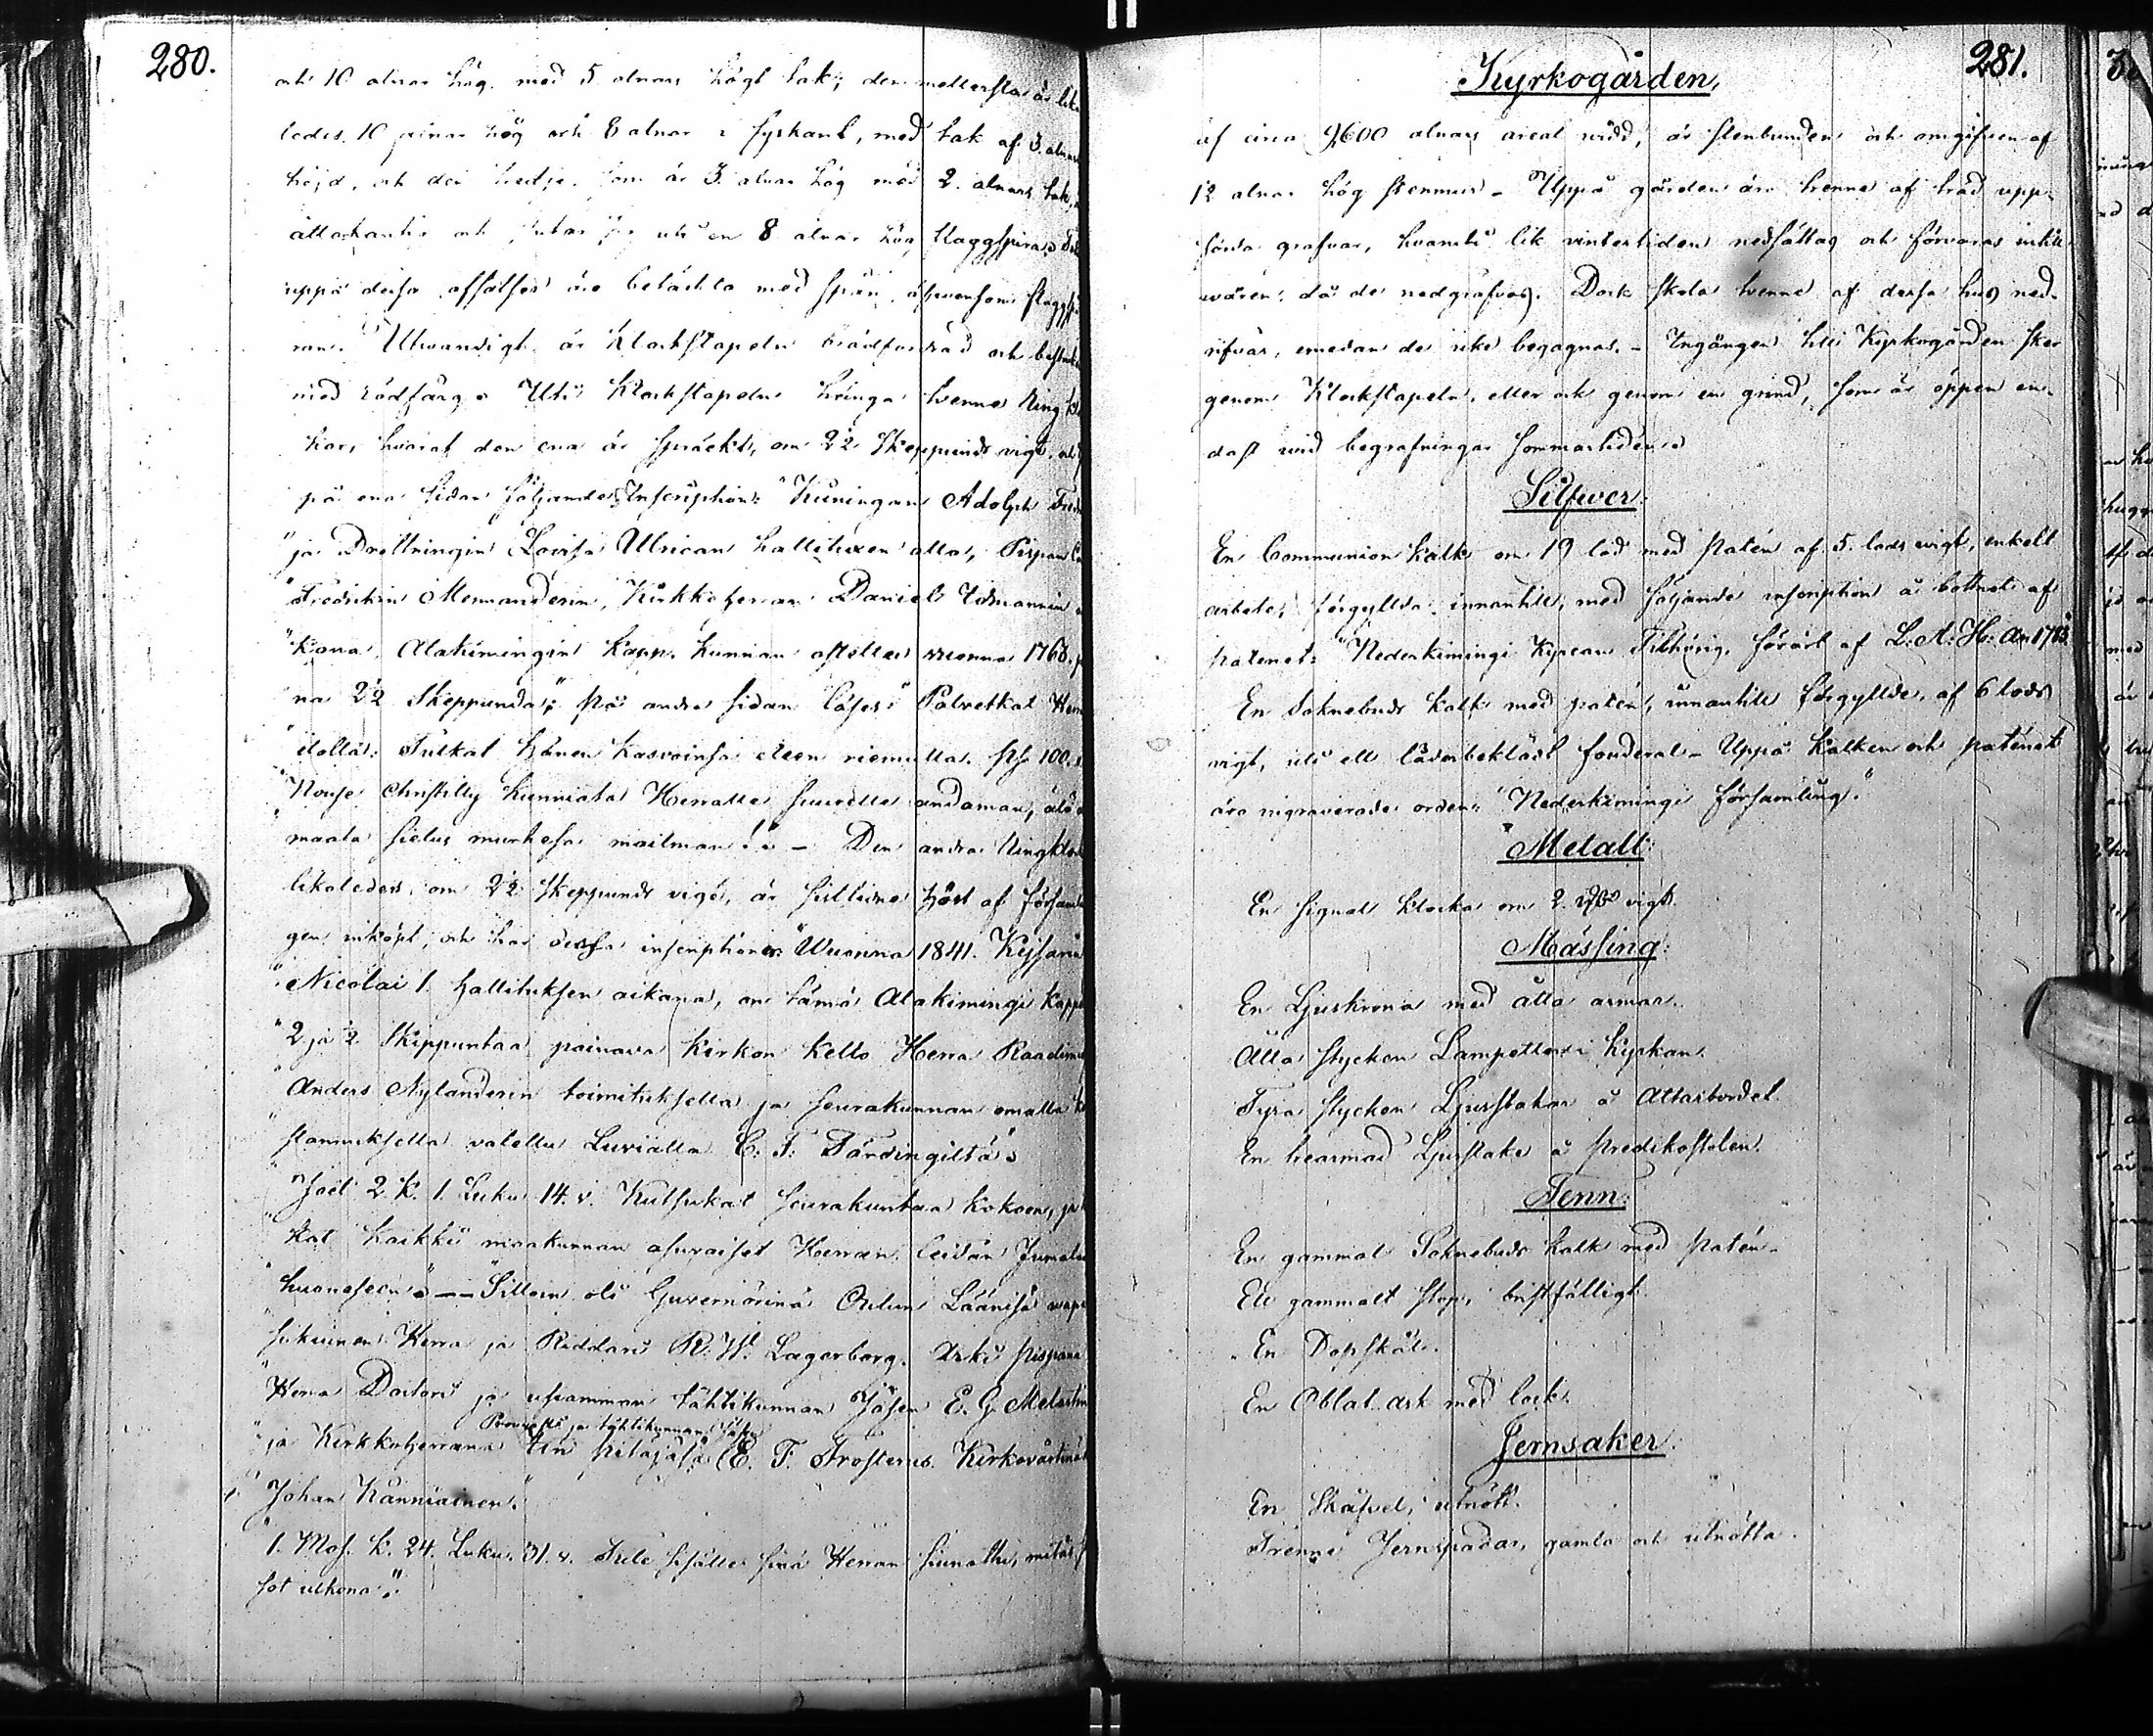 280.
och 10 alnar hög med 5 alnars högt tak; den mellersta är lika
ledes 10 alnar hög och 8 alnar i fyrkant, med tak af 3. alnars
höjd, och den tredje som är 3. alnar hög med 2. alnars tak,
åttakantig och slutar sig uti en 8 alnar hög flaggspira.
uppå dessa afsatser äro betäckta med spån, äfvensom flaggspi
ran. Utwändigt är Klockstapeln brädfordrad och bestruken
med rödfärg. Uti Klockstapeln hänga tvenne Ringkloc
kor, hvaraf den ena är spräckt, om 2½ Skeppunds vigt,
på ena sidan följande Inscription: "Kuningan Adolph Fred
"ja Drottningin Lovisa Ulrican hallituxen alla, Pispan
"Fredrikin Mennanderin, Kirkkoherran Daniel
"kana, Alakimingin Kapp. kunnan ostettu vuonna 1768.
"na 2½ Skeppunda;" på andra sidan läses: "Palvelkat Herra
"ilolla: Tulkat hänen kasvoinsa eteen riemulla. Ps. 100.
"Nouse Christitty kunniata Herralle suurelle andaman, älä
"maata sielus murhesa mailman!" - Den andra Ringklockan
likaledes om 2½ Skeppunds vigt, är sistlidne höst af församlin
gen inköpt, och har dessa inscriptioner: "Wuonna 1841. Kejsarin
"Nicolai 1. hallituksen aikana, on tämä Alakimingi Kappel
"2 ja ½ Skippuntaa painava Kirkon Kello Herra Raadimie
"Anders Nylanderin toimituksella ja seurakunnan omalla ku
"stannuksella valettu Luviälla C. F. Fardingiltä."
"Joël 2 K. 1. Luku 14. v. Kutsukat seurakuntaa kokoon, ja
"kat kaikki maakunnan asuvaiset Herran teidän Jumalan
"huoneseen." -- "Silloin oli Guvernörinä Oulun Läänisä
"sukuinen Herra ja Riddari R. W. Lagerborg. Arki Pispana
"Herra Doctori ja usiamman tähtikunnan Jäsen E. G. Melartin
Provasti ja tähtikunnan Jäsen
"ja Kirkkoherrana Iin pitäjäsä E. F. Frosterus. Kirkovärtinä
"Johan Känniäinen."
"1. Mos. K. 24. Luku. 31. v. Tule sisälle sinä Herran siunattu, mitäs s
sot ulkona".
281.
Kyrkogården,
af circa 9,600 alnars areal widd, är stenbunden och omgifven af
1½ alnar hög stenmur - Uppå gården äro trenne af träd upp-
förda grafvar, hvaruti lik vintertiden nedsättas och förvaras intill
wåren, då de nedgräfvas. Dock skola tvenne af dessa hus ned-
rifvas, emedan de icke begagnas. - Ingången till Kyrkogården sker
genom Klockstapeln, eller ock genom en grind, som är öppen en-
dast wid begrafningar sommartiden.
Silfwer:
En Communion Kalk om 19 lod med Patén af 5. lods vigt, enkelt
arbete, förgyllda innantill, med följande inscription å bottnet af
patenet: "Nederkimingi Kyrcan Tilhörig, förärt af L: A: H: An 1783."
En Sokneduds kalk med patén, innantill förgyllde, af 6 lods
vigt, uti ett läderbeklädt fouderal - Uppå kalken och paténet
äro ingraverade orden: "Nederkimingi Församling."
Metall:
En signal klocka om 2. vigt.
Mässing:
En Ljuskrona med åtta armar.
Åtta stycken Lampetter i Kyrkan.
Fyra stycken Ljusstakar å Altarbordet.
En trearmad Ljusstake å Predikostolen.
Tenn:
En gammal Sokneduds kalk med Patén.
Ett gammalt stop, bristfälligt.
En Dopskål.
En Oblat ask med lock.
Jernsaker:
En Skåfvel, utnött.
Trenne Jernspadar, gamla och utnötta.